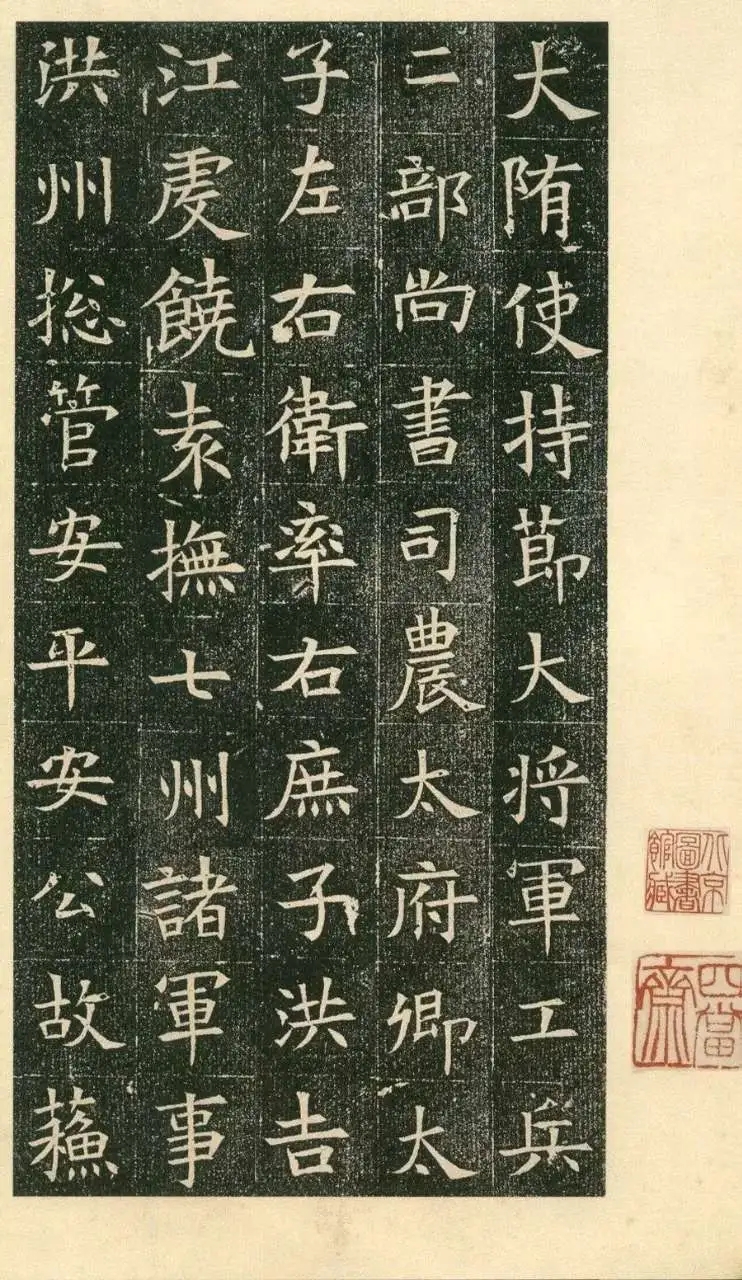 大隋使持莭大将軍工兵
二部尚書司農太府卿太
子左右衛率右庶子洪吉
江虔饒袁撫七州諸軍事
洪州摠管安平安公故蘓
北京圖書館藏
四當齋